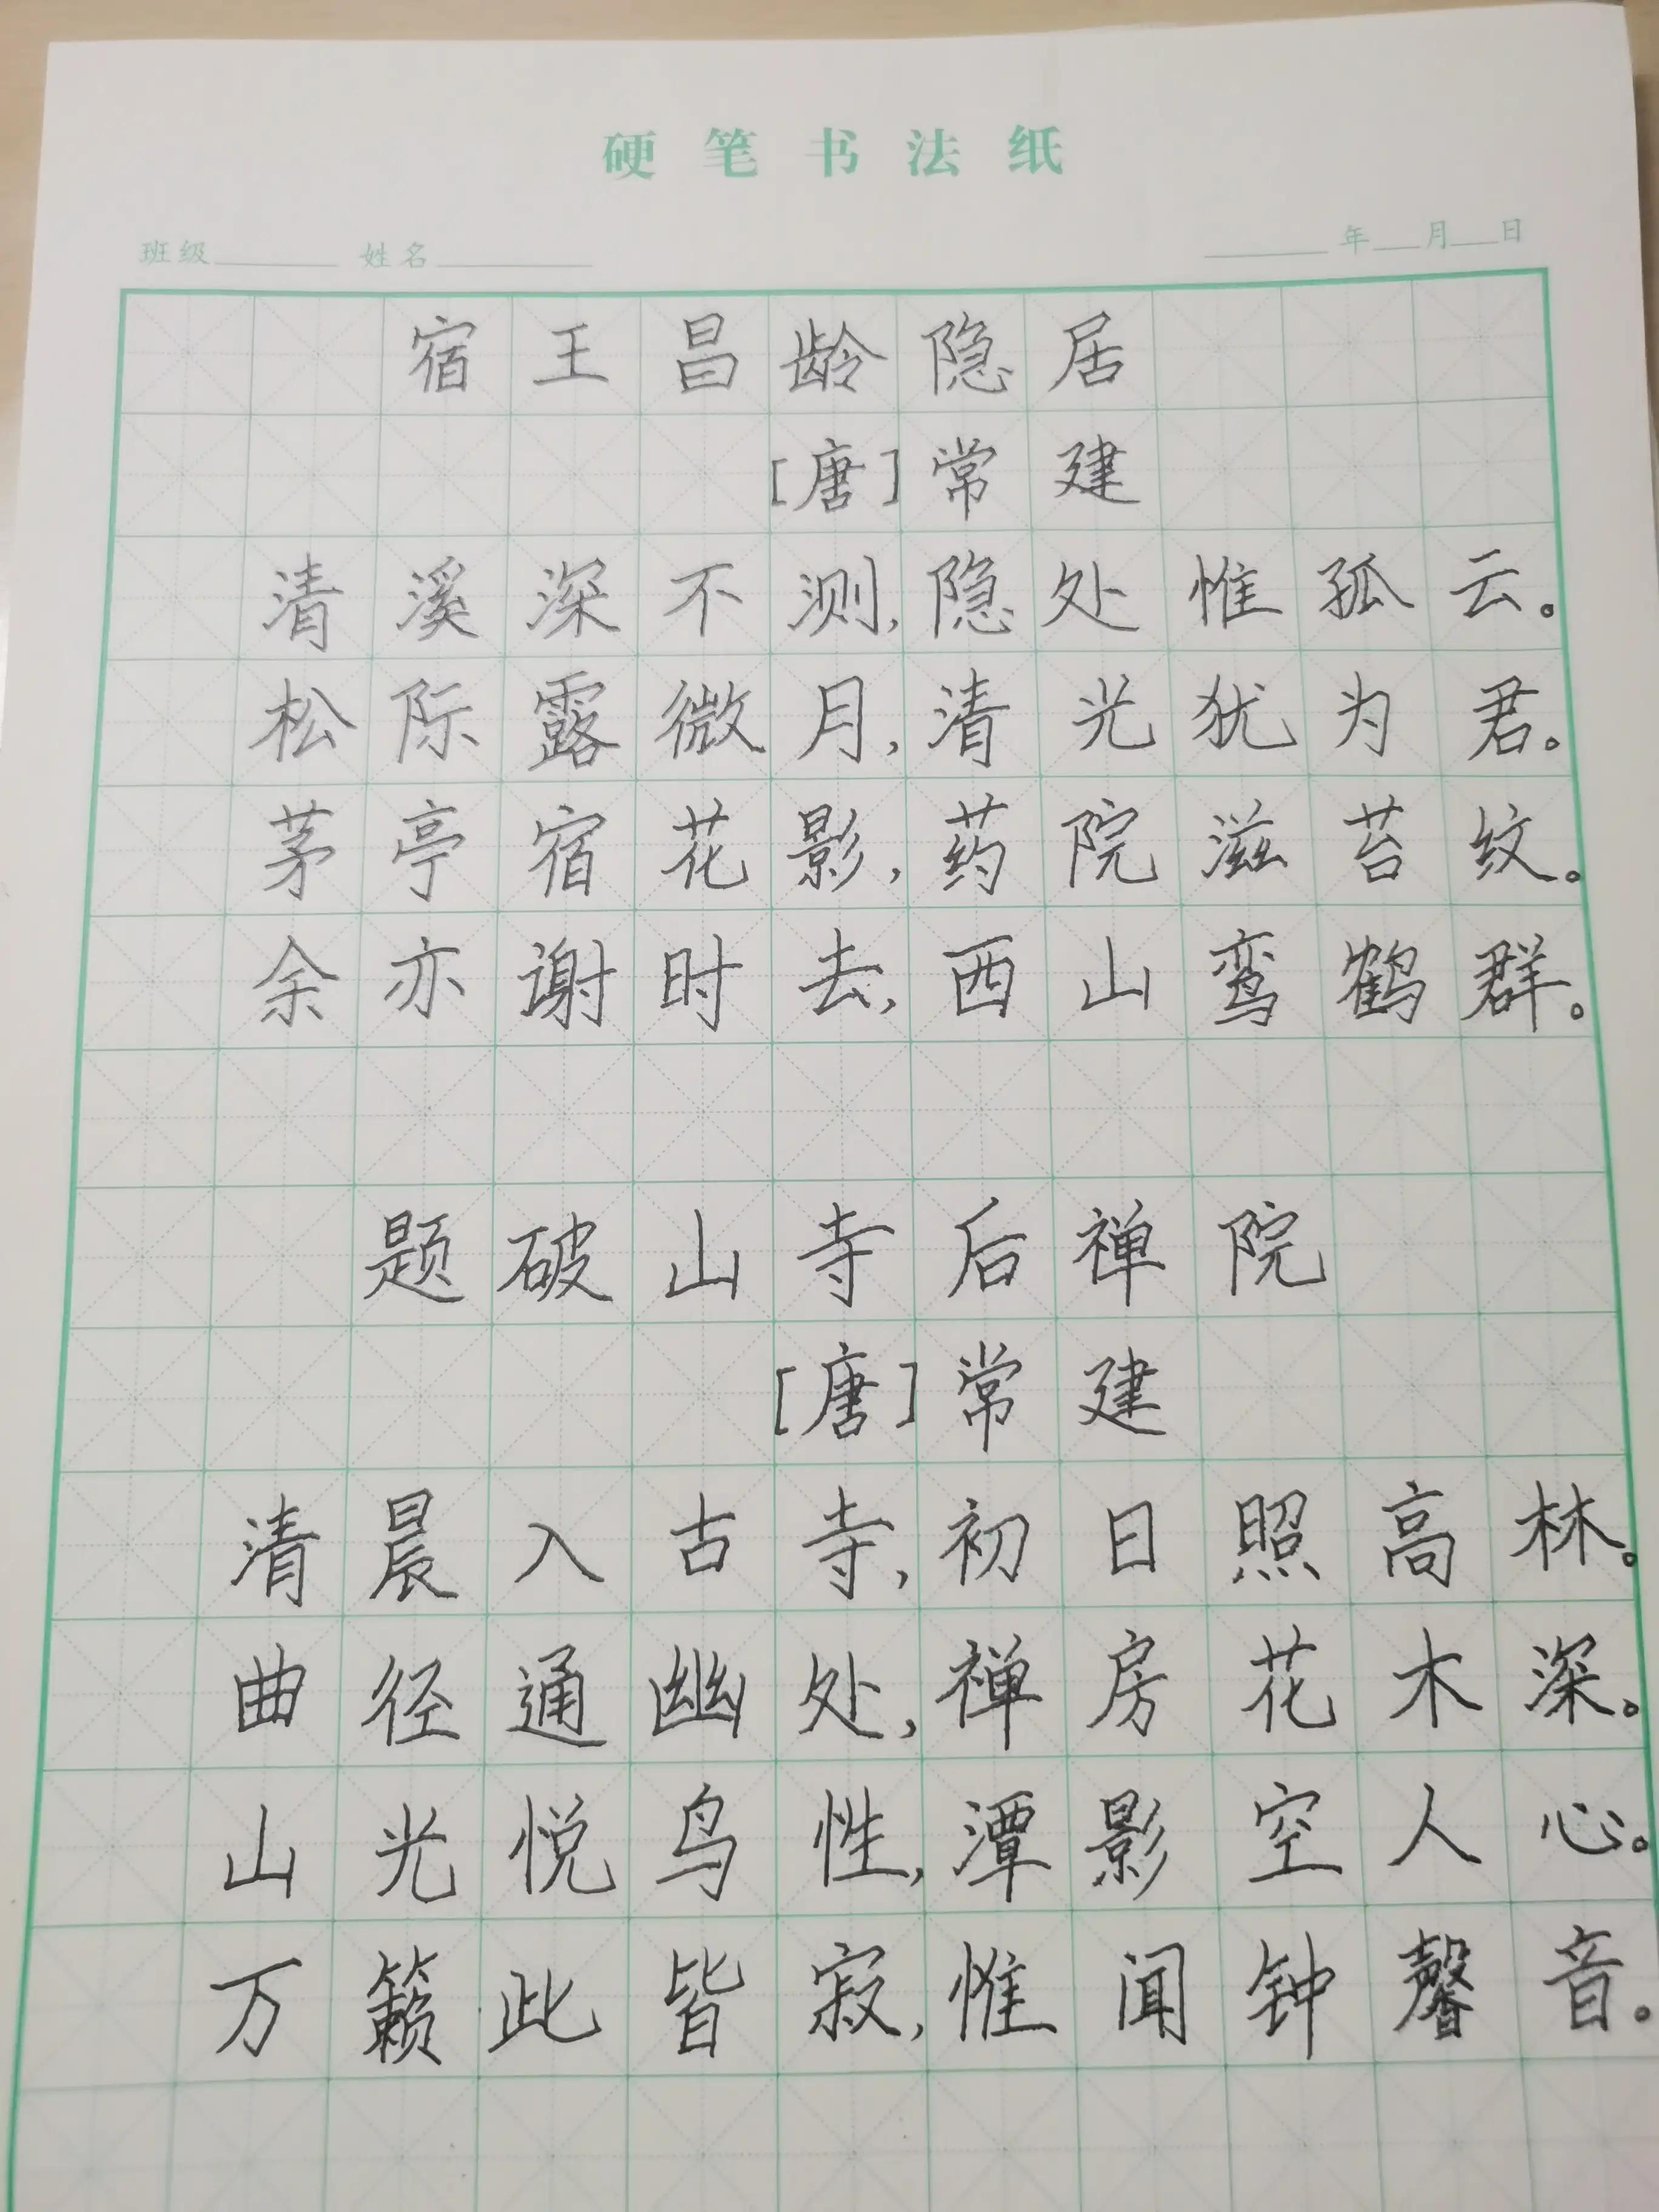 硬笔书法纸
班级 姓名 年 月 日
宿王昌龄隐居
[唐]常建
清溪深不测,隐处惟孤云。
松际露微月,清光犹为君。
茅亭宿花影,药院滋苔纹。
余亦谢时去,西山鸾鹤群。
题破山寺后禅院
[唐]常建
清晨入古寺,初日照高林。
曲径通幽处,禅房花木深。
山光悦鸟性,潭影空人心。
万籁此皆寂,惟闻钟馨音。